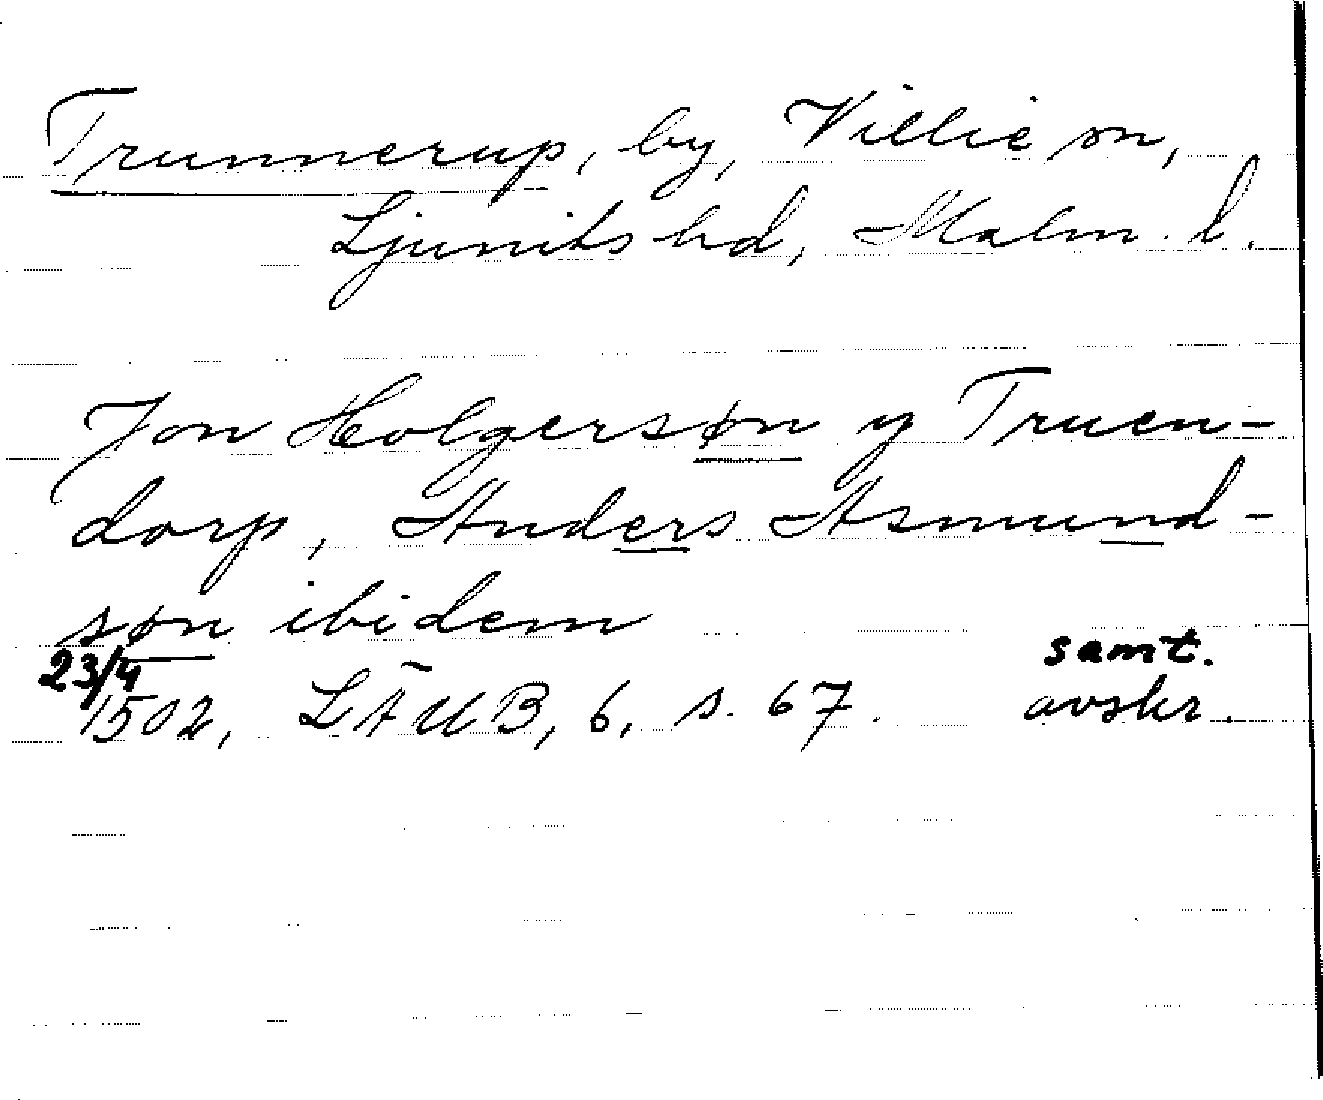 Trunnerup, by, Villie sn,
Ljunits hd, Malm. l.
Jon Holgersøn y Truen-
dorp, Anders Asmund-
søn ibidem
samt.
23/4 1502, LÄUB, 6, s. 67. avskr.